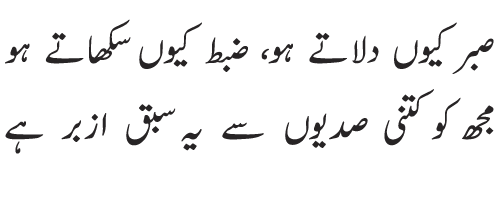 صبر کیوں دلاتے ہو، ضبط کیوں سکھاتے ہو
مجھ کو کتنی صدیوں سے یہ سبق ازبر ہے